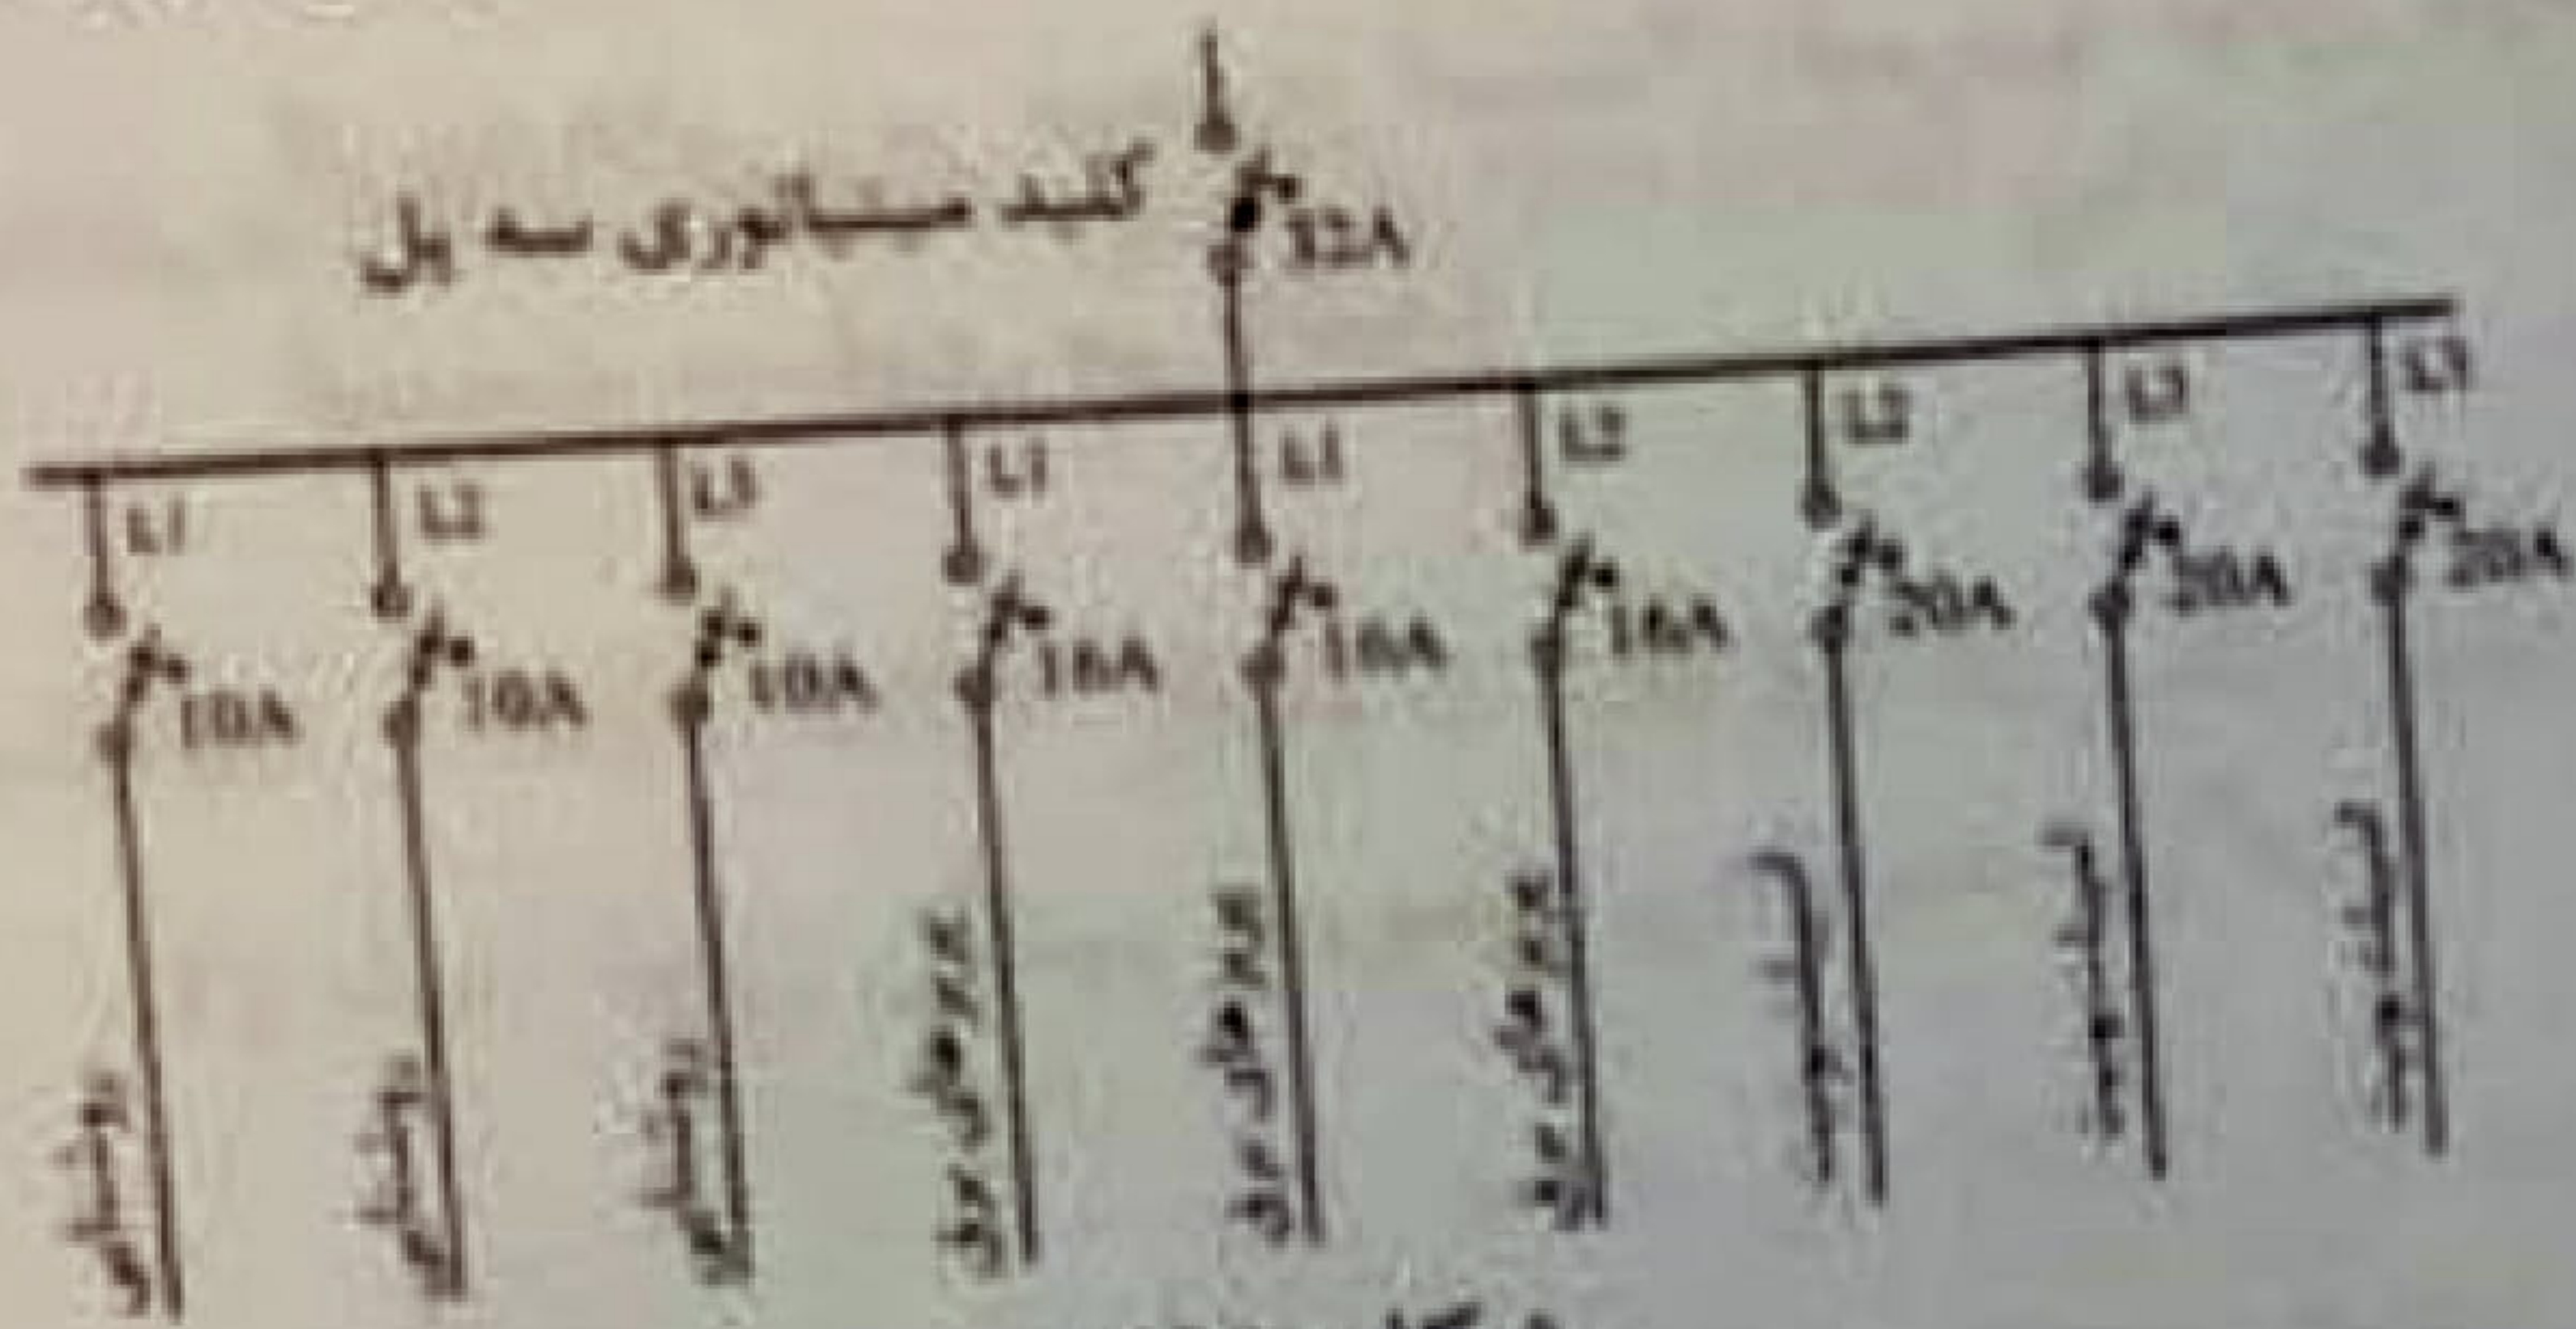 کلید مینیاتوری سه پل
32A
L1 L2 L3 L1 L1 L2 L2 L3 L3
10A 10A 10A 16A 16A 16A 20A 20A 20A
روشنایی روشنایی روشنایی پریز های برق پریز های برق پریز های برق